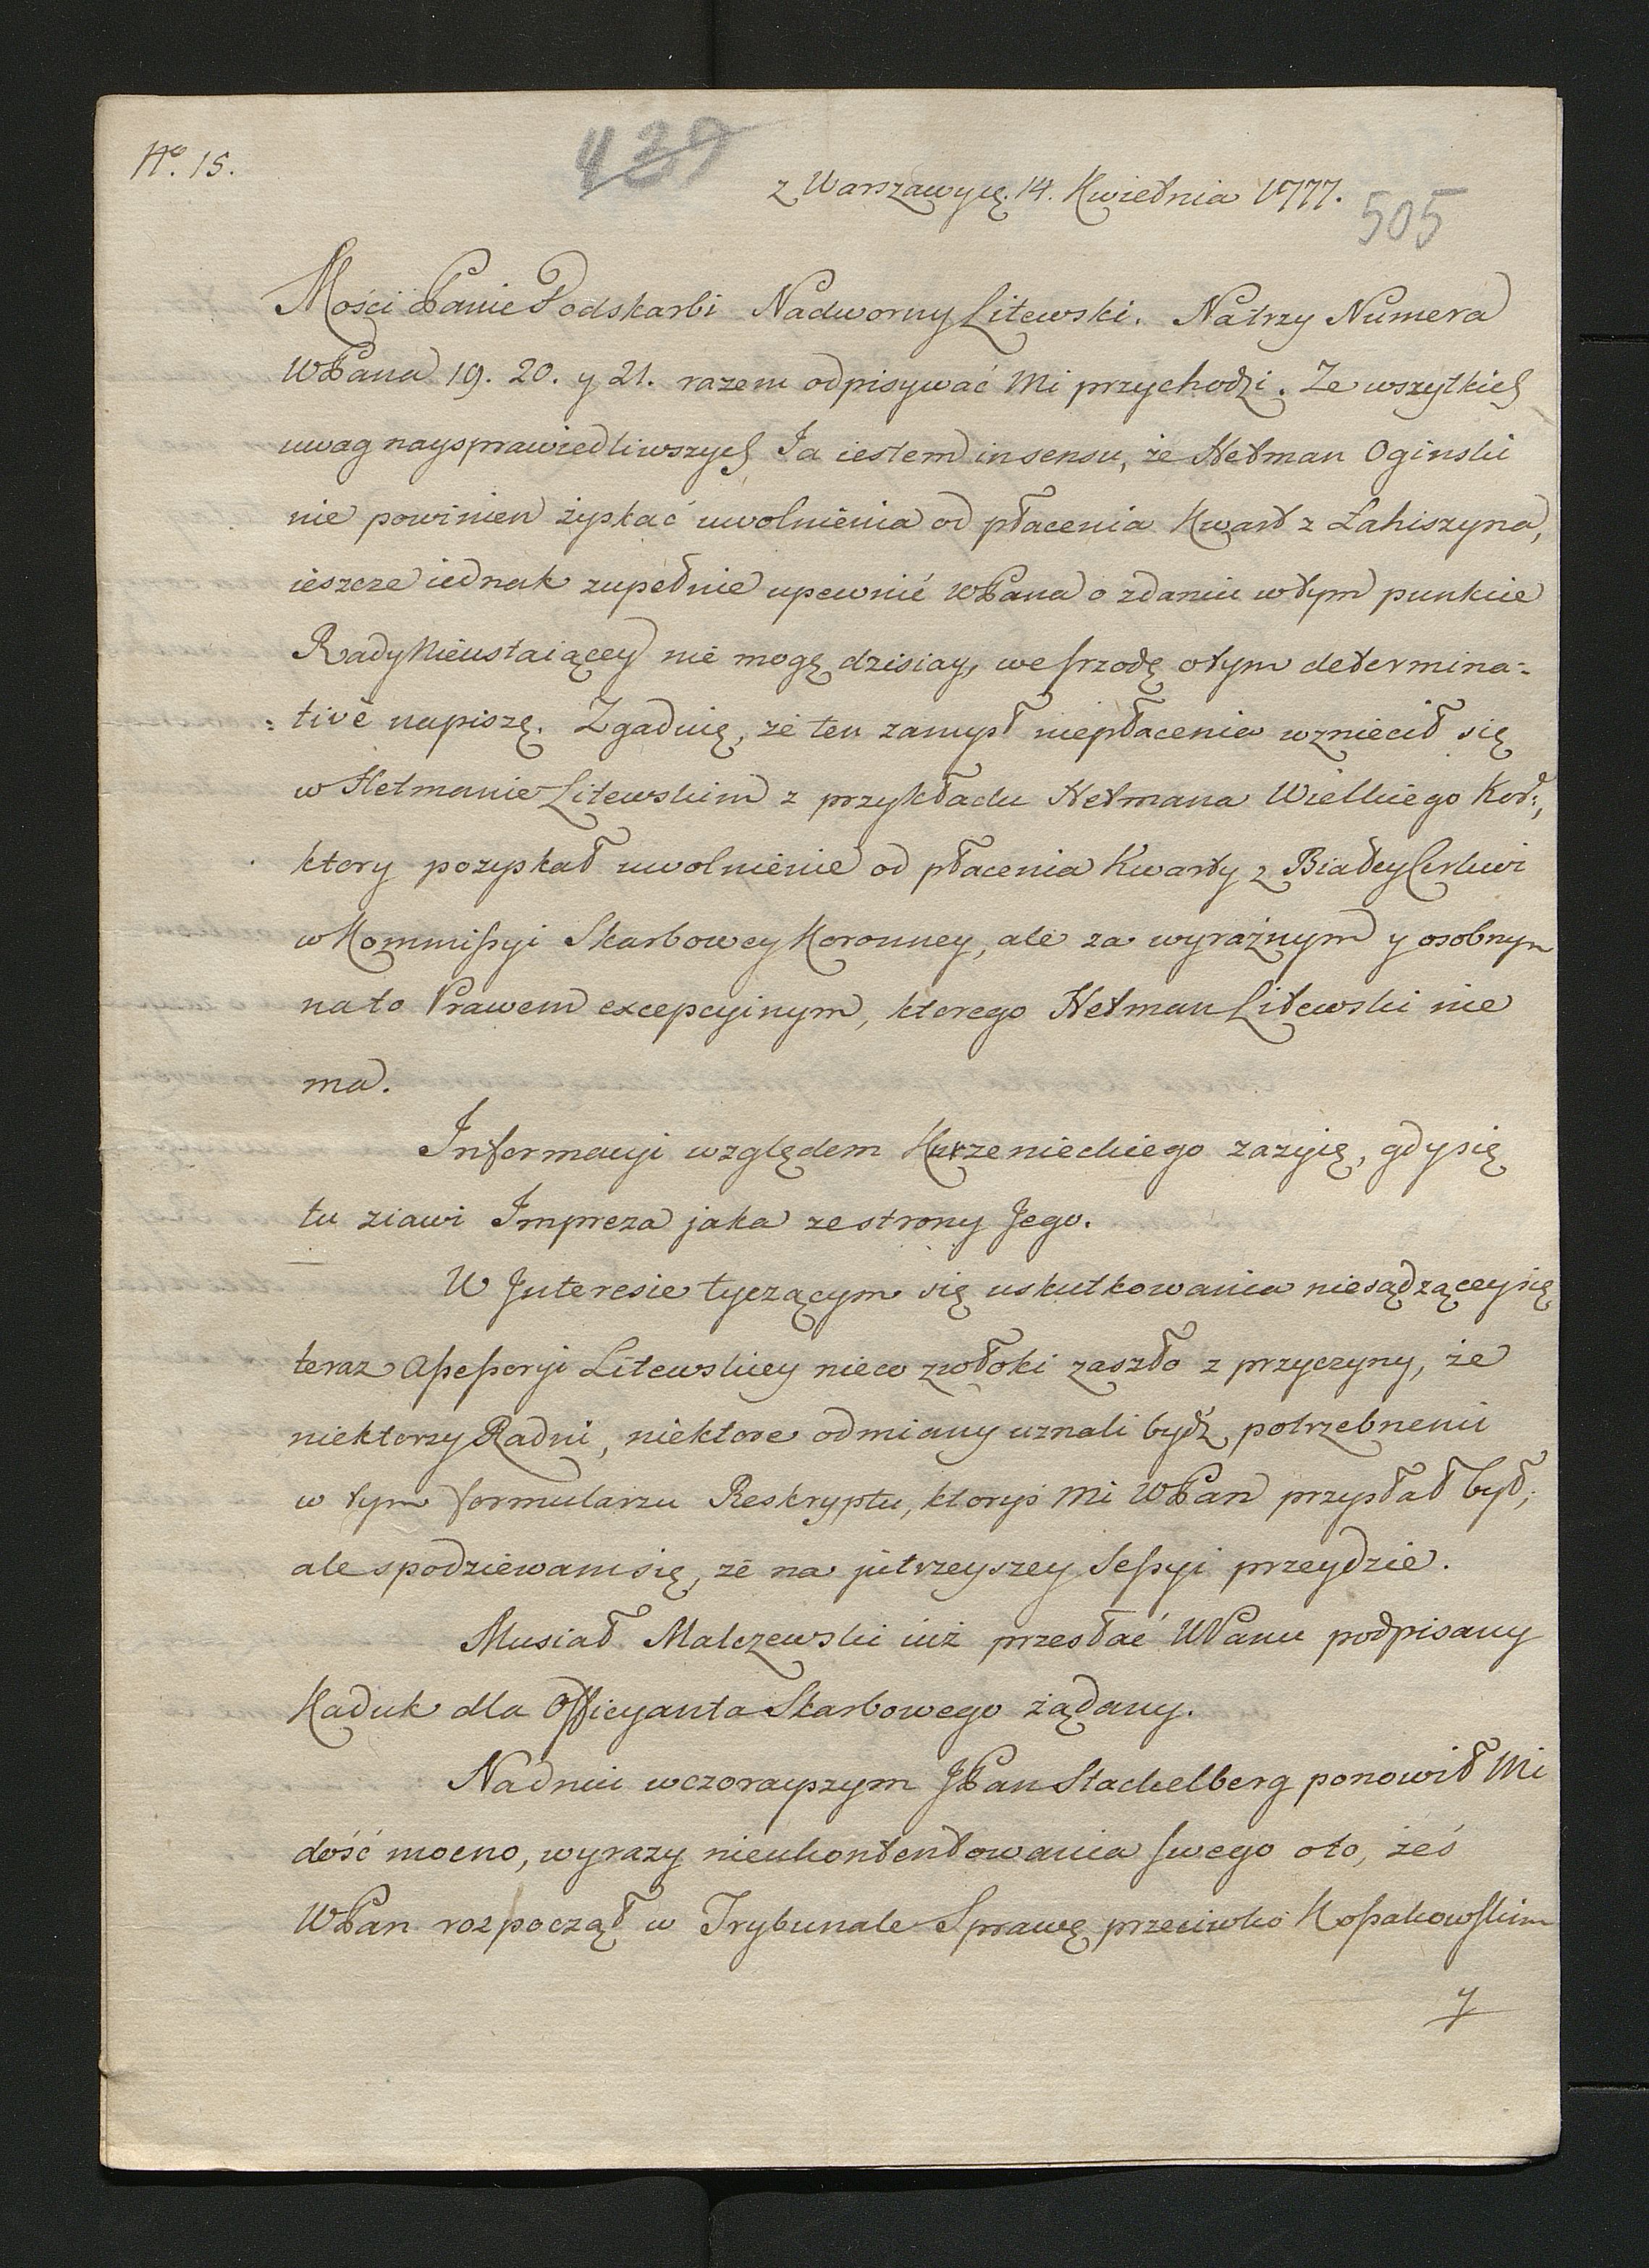 No. 15.
439
z Warszawy ię. 14. Kwietnia 1777.
505
Mości Panie Podskarbi Nadworny Litewski. Na trzy Numera
WPana 19. 20. y 21. razem odpisywać Mi przychodzi. Ze wszytkich
uwag naysprawiedliwszych Ja iestem in sensu, że Hetman Oginski
nie powinien zyskać uwolnienia od płacenia Kwart z Łahiszyna,
ieszcze iednak zupełnie upewnić WPana o zdaniu w tym punkcie
Rady Nieustaiącey nie mogę dzisiay, we srzodę o tym determina=
=tivè napiszę. Zgadnię, że ten zamysł niepłacenia wzniecił się
w Hetmanie Litewskim z przykładu Hetmana Wielkiego Kor:,
ktory pozyskał uwolnienie od płacenia Kwarty z Białey Cerkwi
w Kommissyi Skarbowey Koronney, ale za wyraźnym y osobnym
na to Prawem excepcyinym, ktorego Hetman Litewski nie
ma.
Informacyi względem Kurzenieckiego zażyię, gdy się
tu ziawi Impreza jaka ze strony Jego.
W Interesie tyczącym się uskutkowania niesądzącey się
teraz Assessoryi Litewskiey nieco zwłoki zaszło z przyczyny, że
niektorzy Radni, niektore odmiany uznali bydź potrzebnemi
w tym formularzu Reskryptu, ktoryś mi WPan przysłał był;
ale spodziewam się, że na jutrzeyszey Sessyi przeydzie.
Musiał Malczewski iuż przesłać WPanu podpisany
Kaduk dla Officyanta Skarbowego żądany.
Na dniu wczorayszym JPan Stackelberg ponowił Mi
dość mocno, wyrazy nieukontentowania swego o to, żeś
WPan rozpoczął w Trybunale Sprawę przeciwko Kossakowskim
y